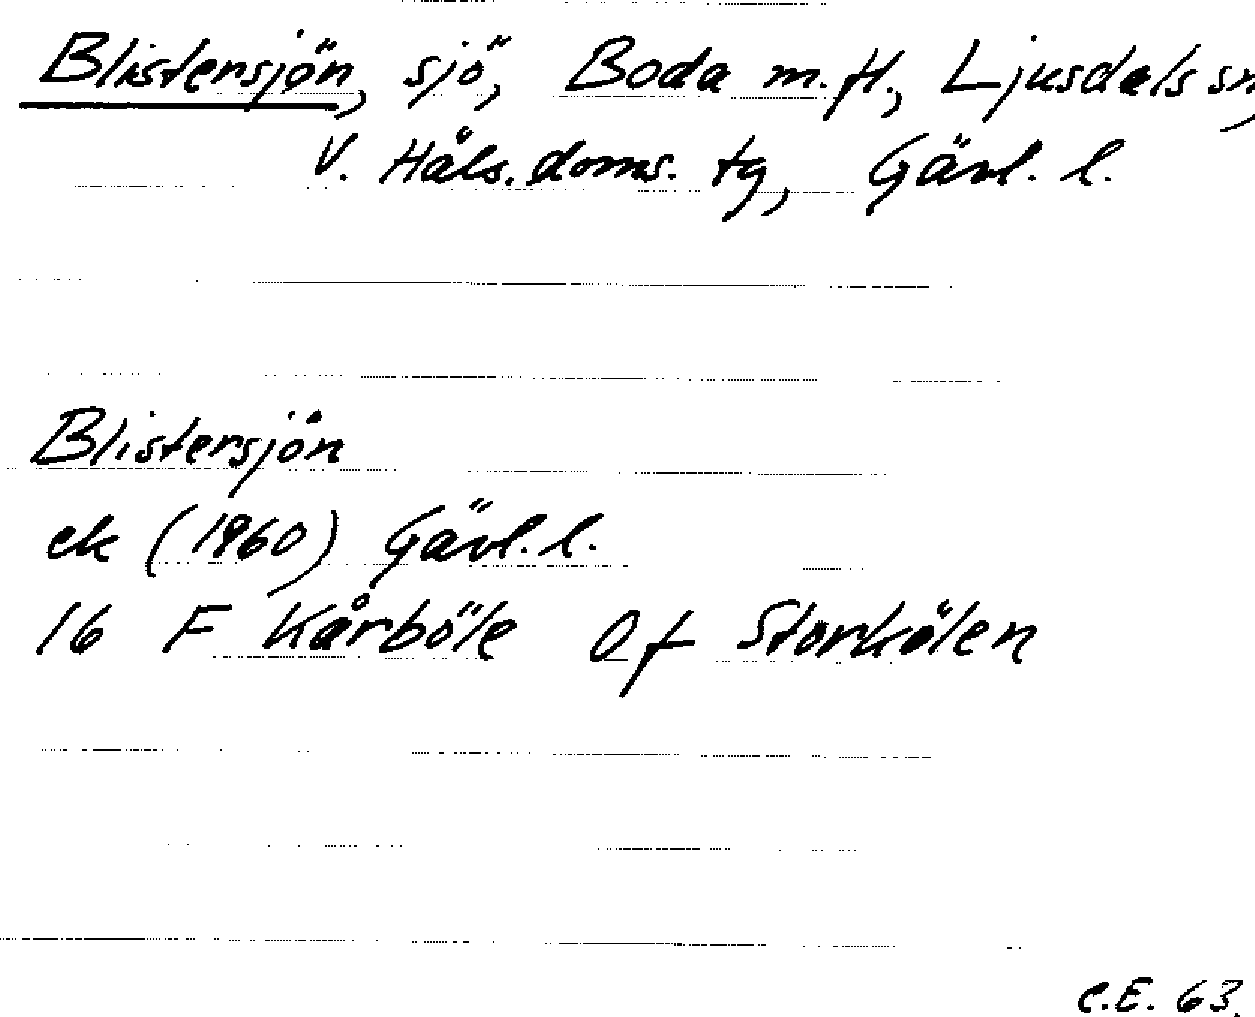 Blistersjön, sjö, Boda m.fl., Ljusdals sn,
V. Häls. doms. tg, Gävl. l.
Blistersjön
ek (1960) Gävl. l.
16 F Kårböle Of Storkölen
C.E. 63.